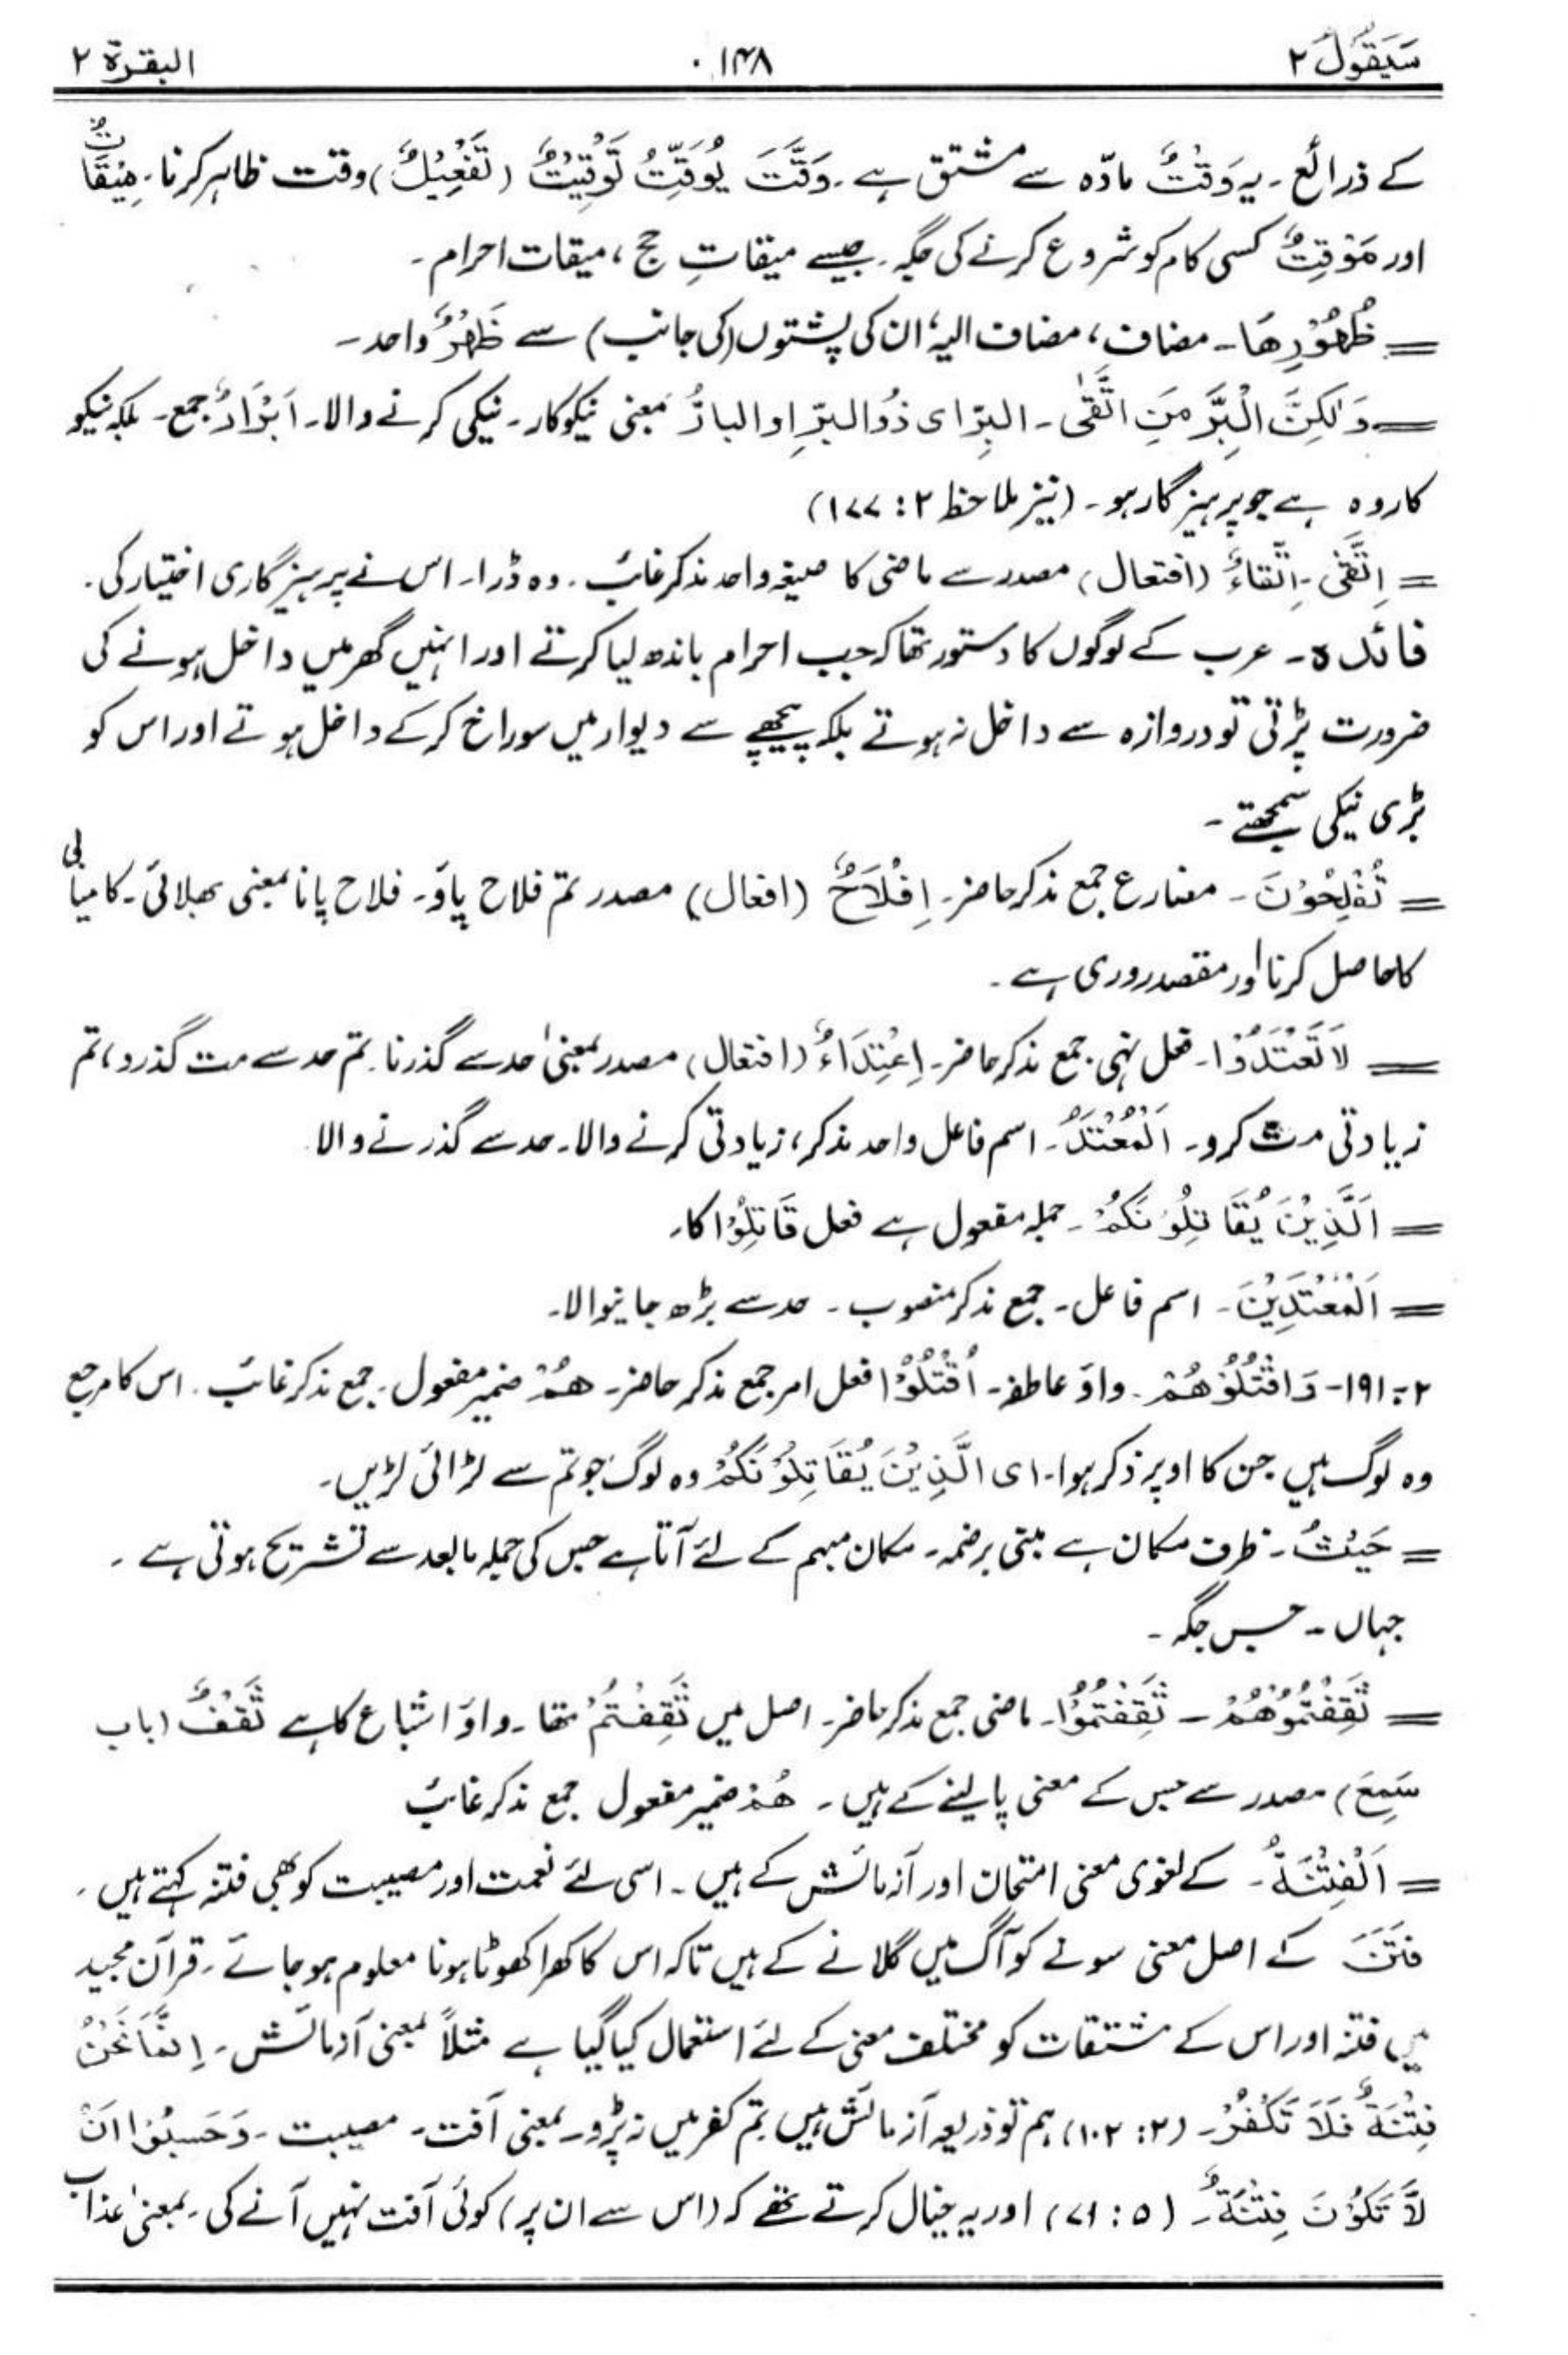 سَيَقُولُ ٢ ١٤٨ البقرة ٢
کے ذرائع ۔ یہ وَقْتٌ مادّہ سے مشتق ہے ۔ وَقَّتَ يُوَقِّتُ تَوْقِيْتٌ (تَفْعِيْلٌ) وقت ظاہر کرنا۔ مِيْقَاتٌ
اور مَوْقِتٌ کسی کام کو شروع کرنے کی جگہ۔ جیسے میقاتِ حج ، میقات احرام ۔
= ظُهُوْرِهَا۔ مضاف ، مضاف الیہ، ان کی پشتوں (کی جانب) سے ظَهْرٌ واحد ۔
= وَلٰكِنَّ الْبِرَّ مَنِ اتَّقٰى ۔ البِرّ ای ذُو البِرِّ او البارُّ بمعنی نیکوکار۔ نیکی کرنے والا۔ اَبْرَارٌ جمع ۔ بلکہ نیکو
کار وہ ہے جو پرہیزگار ہو ۔ (نیز ملاحظ ٢ : ١٧٧)
= اِتَّقٰى ۔ اِتِّقَاءٌ (افتعال) مصدر سے ماضی کا صیغہ واحد مذکر غائب ۔ وہ ڈرا۔ اس نے پرہیزگاری اختیار کی ۔
فائدہ ۔ عرب کے لوگوں کا دستور تھا کہ جب احرام باندھ لیا کرتے اور انہیں گھر میں داخل ہونے کی
ضرورت پڑتی تو دروازہ سے داخل نہ ہوتے بلکہ پیچھے سے دیوار میں سوراخ کر کے داخل ہوتے اور اس کو
بڑی نیکی سمجھتے ۔
= تُفْلِحُوْنَ ۔ مضارع جمع مذکر حاضر۔ اِفْلَاحٌ (افعال) مصدر تم فلاح پاؤ ۔ فلاح پانا بمعنی بھلائی ۔ کامیابی
کا حاصل کرنا اور مقصد روری ہے ۔
= لَا تَعْتَدُوْا ۔ فعل نہی جمع مذکر حاضر۔ اِعْتِدَاءٌ (افتعال) مصدر بمعنیٰ حد سے گذرنا۔ تم حد سے مت گذرو، تم
زیادتی مت کرو۔ اَلْمُعْتَدُ ۔ اسم فاعل واحد مذکر، زیادتی کرنے والا۔ حد سے گذرنے والا
= اَلَّذِيْنَ يُقَاتِلُوْنَكُمْ ۔ جملہ مفعول ہے فعل قَاتِلُوْا کا۔
= اَلْمُعْتَدِيْنَ ۔ اسم فاعل۔ جمع مذکر منصوب ۔ حد سے بڑھ جانیوالا۔
٢ : ١٩١ ۔ وَاقْتُلُوْهُمْ ۔ واؤ عاطفہ ۔ اُقْتُلُوْا فعل امر جمع مذکر حاضر۔ هُمْ ضمیر مفعول ۔ جمع مذکر غائب ۔ اس کا مرجع
وہ لوگ ہیں جن کا اوپر ذکر ہوا۔ ای الَّذِيْنَ يُقَاتِلُوْنَكُمْ وہ لوگ جو تم سے لڑائی لڑیں ۔
= حَيْثُ ۔ ظرف مکان ہے مبنی بر ضمہ۔ مکان مبہم کے لئے آتا ہے جس کی جملہ مابعد سے تشریح ہوتی ہے ۔
جہاں ۔ جس جگہ ۔
= ثَقِفْتُمُوْهُمْ ۔ ثَقِفْتُمُوْا۔ ماضی جمع مذکر حاضر۔ اصل میں ثَقِفْتُمْ تھا۔ واؤ اشباع کا ہے ثَقْفٌ (باب
سَمِعَ) مصدر سے جس کے معنی پالینے کے ہیں ۔ هُمْ ضمیر مفعول جمع مذکر غائب
= اَلْفِتْنَةُ ۔ کے لغوی معنی امتحان اور آزمائش کے ہیں ۔ اسی لئے نعمت اور مصیبت کو بھی فتنہ کہتے ہیں ۔
فَتَنَ کے اصل معنی سونے کو آگ میں گلانے کے ہیں تاکہ اس کا کھرا کھوٹا ہونا معلوم ہو جائے ۔ قرآن مجید
میں فتنہ اور اس کے مشتقات کو مختلف معنی کے لئے استعمال کیا گیا ہے مثلاً بمعنی آزمائش ۔ اِنَّمَا نَحْنُ
فِتْنَةٌ فَلَا تَكْفُرْ ۔ (٢ : ١٠٢) ہم تو ذریعہ آزمائش ہیں تم کفر میں نہ پڑو۔ بمعنی آفت ۔ مصیبت ۔ وَحَسِبُوْا اَنْ
لَّا تَكُوْنَ فِتْنَةٌ ۔ (٥ : ٧١) اور یہ خیال کرتے تھے کہ (اس سے ان پر) کوئی آفت نہیں آنے کی ۔ بمعنیٰ عذاب